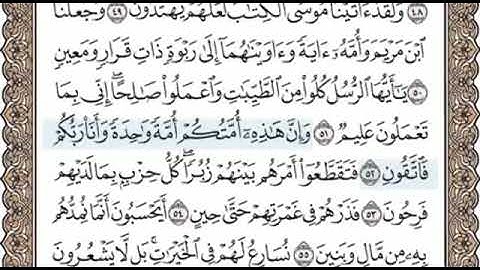 ٤٨ وَلَقَدْ ءَاتَيْنَا مُوسَى ٱلْكِتَٰبَ لَعَلَّهُمْ يَهْتَدُونَ ٤٩ وَجَعَلْنَا
ٱبْنَ مَرْيَمَ وَأُمَّهُۥٓ ءَايَةً وَءَاوَيْنَٰهُمَآ إِلَىٰ رَبْوَةٍ ذَاتِ قَرَارٍ وَمَعِينٍ
٥٠ يَٰٓأَيُّهَا ٱلرُّسُلُ كُلُوا۟ مِنَ ٱلطَّيِّبَٰتِ وَٱعْمَلُوا۟ صَٰلِحًا ۖ إِنِّى بِمَا
تَعْمَلُونَ عَلِيمٌ ٥١ وَإِنَّ هَٰذِهِۦٓ أُمَّتُكُمْ أُمَّةً وَٰحِدَةً وَأَنَا۠ رَبُّكُمْ
فَٱتَّقُونِ ٥٢ فَتَقَطَّعُوٓا۟ أَمْرَهُم بَيْنَهُمْ زُبُرًا ۖ كُلُّ حِزْبٍۭ بِمَا لَدَيْهِمْ
فَرِحُونَ ٥٣ فَذَرْهُمْ فِى غَمْرَتِهِمْ حَتَّىٰ حِينٍ ٥٤ أَيَحْسَبُونَ أَنَّمَا نُمِدُّهُم
بِهِۦ مِن مَّالٍ وَبَنِينَ ٥٥ نُسَارِعُ لَهُمْ فِى ٱلْخَيْرَٰتِ ۚ بَل لَّا يَشْعُرُونَ